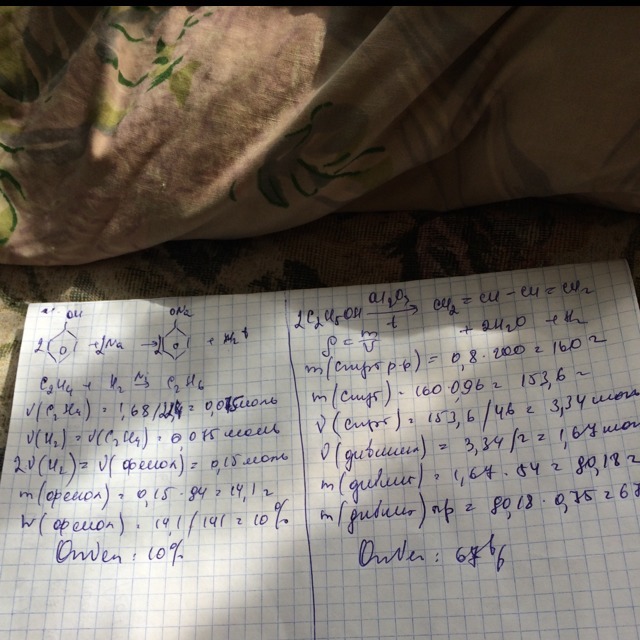 OH
ONa
2 + 2Na → 2 + H₂↑
C₂H₄ + H₂ → C₂H₆
ν(C₂H₄) = 1,68/22,4 = 0,075 моль
ν(H₂) = ν(C₂H₄) = 0,075 моль
2ν(H₂) = ν(фенол) = 0,15 моль
m(фенол) = 0,15 · 94 = 14,1 г
w(фенол) = 14,1 / 141 = 10%
Ответ: 10%
2C₂H₅OH Al₂O₃ t → CH₂ = CH - CH = CH₂
+ 2H₂O + H₂
ρ = m/V
m(спирт р-в) = 0,8 · 200 = 160 г
m(спирт) = 160 · 0,96 = 153,6 г
ν(спирт) = 153,6 / 46 = 3,34 моль
ν(дивинил) = 3,34/2 = 1,67 моль
m(дивинил) = 1,67 · 54 = 90,18 г
m(дивинил) пр = 90,18 · 0,75 = 67
Ответ: 67